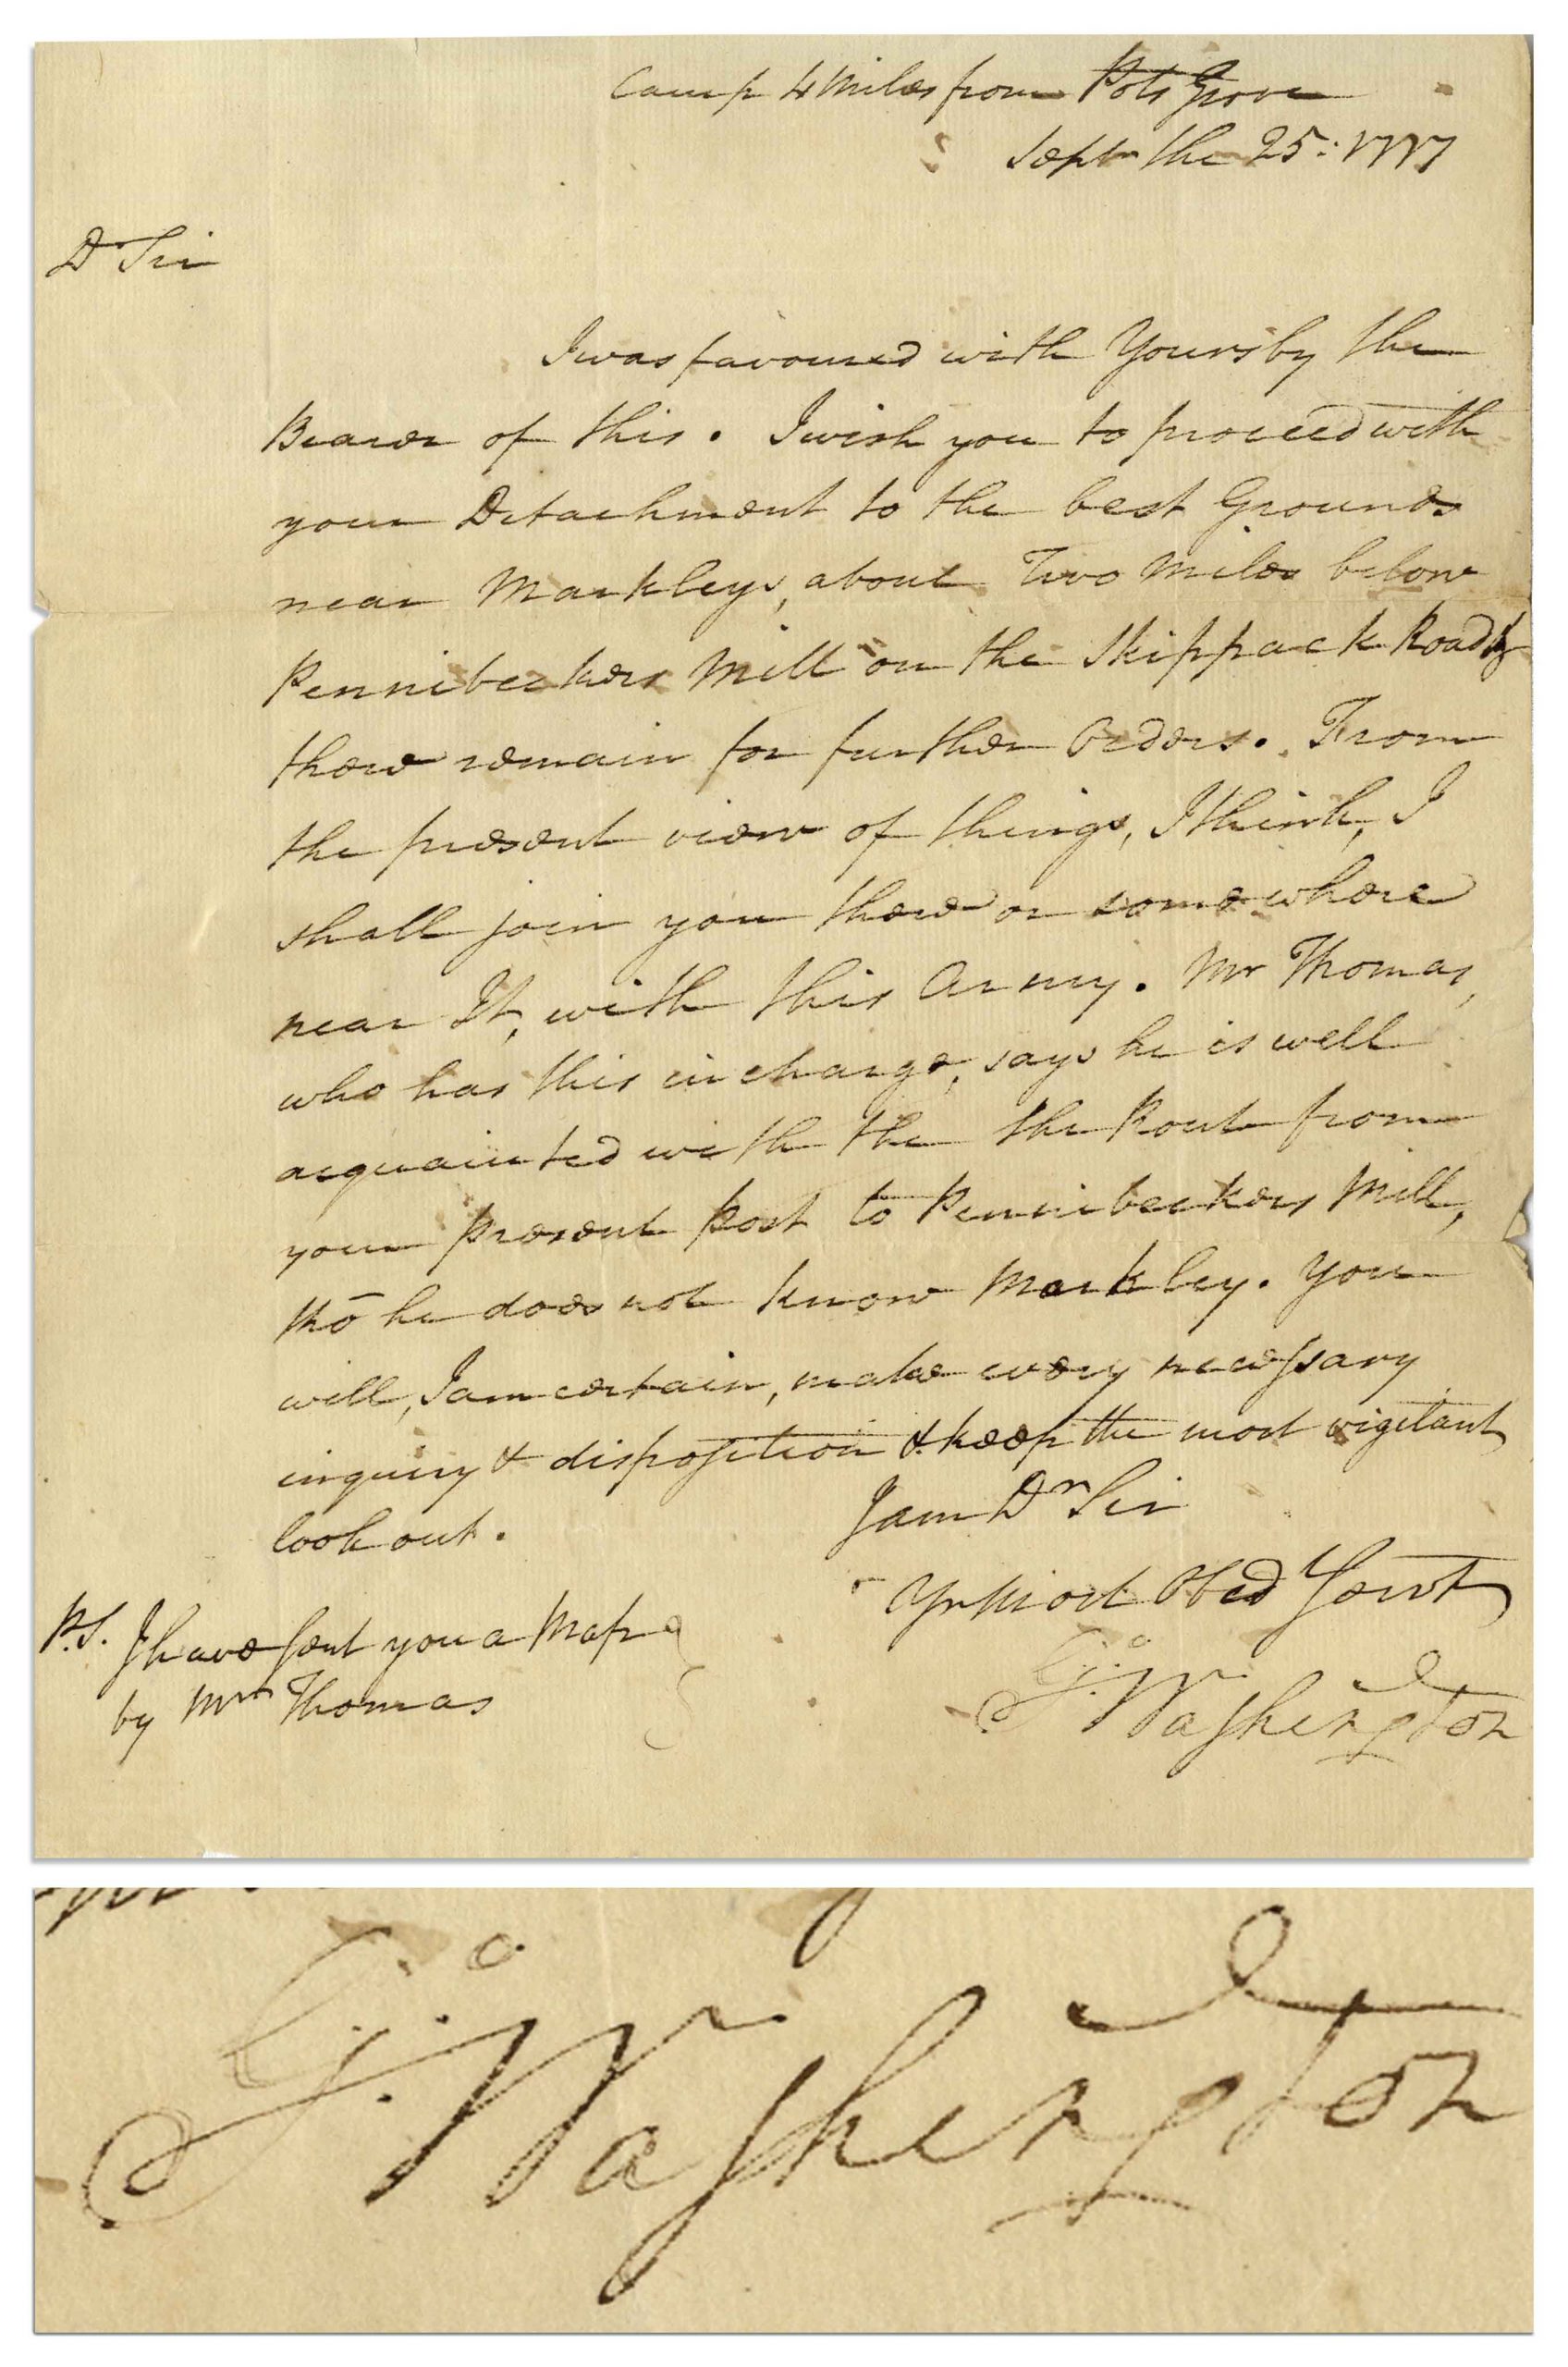 Camp 4 Miles from Pots Grove
Sepr the 25: 1777
Dr Sir
I was favoured with Yours by the
Bearer of this. I wish you to proceed with
your Detachment to the best Grounds
near Markleys, about Two miles below
Pennibeckers Mill on the Skippack Road &
there remain for further Orders. From
the present view of things, I think, I
shall join you there or somewhere
near It, with this Army. Mr Thomas,
who has this in charge, says he is well
acquainted with the the Rout from
your present post to Pennibeckers Mill,
tho he does not know Markley. You
will, I am certain, make every necessary
inquiry & disposition & keep the most vigilant
look out.
I am Dr Sir
Yr Most Obed Servt
P.S. I have sent you a Map
by Mr Thomas
Go: Washington
Go: Washington